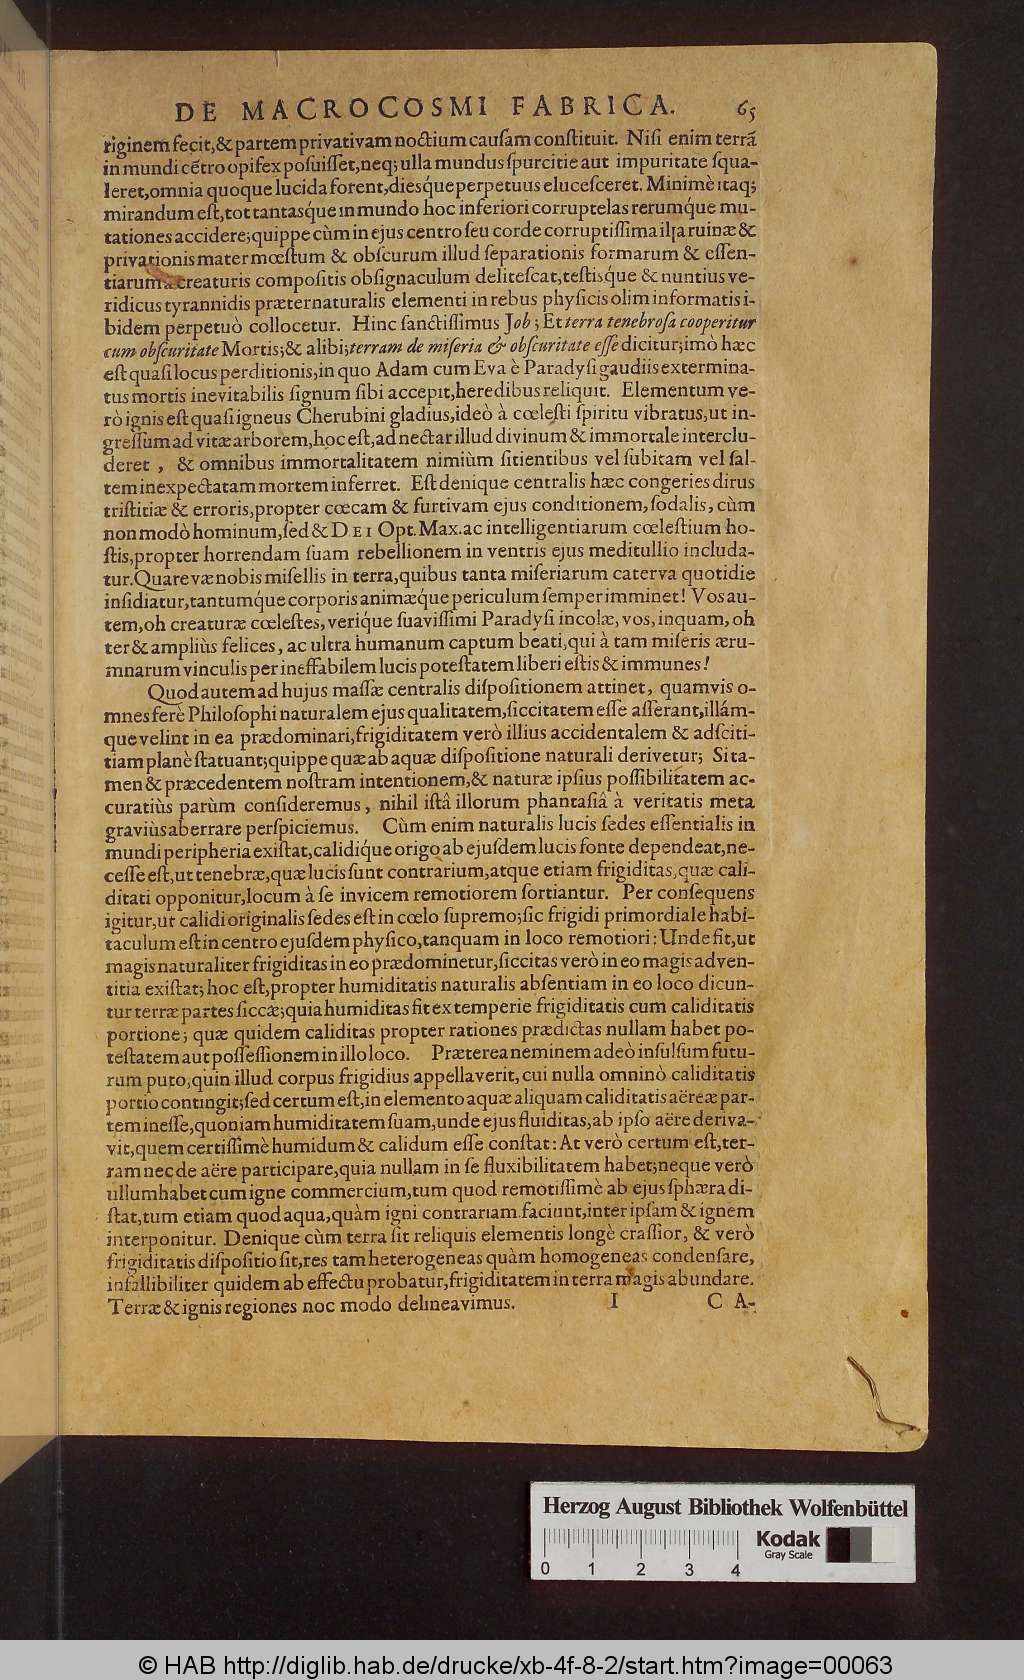 DE MACROCOSMI FABRICA. 65
riginem fecit,& partem privativam noctium causam constituit. Nisi enim terrã
in mundi cẽtro opifex posuisset,neq; ulla mundus spurcitie aut impuritate squa-
leret,omnia quoque lucida forent,diesq́ue perpetuus elucesceret. Minimè itaq;
mirandum est,tot tantasq́ue in mundo hoc inferiori corruptelas rerumq́ue mu-
tationes accidere;quippe cùm in ejus centro seu corde corruptissima illa ruinæ &
privationis mater mœstum & obscurum illud separationis formarum & essen-
tiarum à creaturis compositis obsignaculum delitescat,testisque & nuntius ve-
ridicus tyrannidis præternaturalis elementi in rebus physicis olim informatis i-
bidem perpetuò collocetur. Hinc sanctissimus Job; Et terra tenebrosa cooperitur
cum obscuritate Mortis;& alibi;terram de miseria & obscuritate esse dicitur;imò hæc
est quasi locus perditionis,in quo Adam cum Eva è Paradysi gaudiis extermina-
tus mortis inevitabilis signum sibi accepit,heredibus reliquit. Elementum ve-
rò ignis est quasi igneus Cherubini gladius,ideò à cœlesti spiritu vibratus,ut in-
gressum ad vitæ arborem,hoc est,ad nectar illud divinum & immortale interclu-
deret , & omnibus immortalitatem nimiùm sitientibus vel subitam vel sal-
tem inexpectatam mortem inferret. Est denique centralis hæc congeries dirus
tristitiæ & erroris,propter cœcam & furtivam ejus conditionem, sodalis, cùm
non modò hominum,sed & DEI Opt. Max. ac intelligentiarum cœlestium ho-
stis,propter horrendam suam rebellionem in ventris ejus meditullio includa-
tur. Quare væ nobis misellis in terra,quibus tanta miseriarum caterva quotidie
insidiatur,tantumq́ue corporis animæq́ue periculum semper imminet! Vos au-
tem,oh creaturæ cœlestes, veriq́ue suavissimi Paradysi incolæ, vos, inquam, oh
ter & ampliùs felices, ac ultra humanum captum beati, qui à tam miseris æru-
mnarum vinculis per ineffabilem lucis potestatem liberi estis & immunes!
Quod autem ad hujus massæ centralis dispositionem attinet, quamvis o-
mnes ferè Philosophi naturalem ejus qualitatem,siccitatem esse asserant,illám-
que velint in ea prædominari,frigiditatem verò illius accidentalem & adsciti-
tiam planè statuant;quippe quæ ab aquæ dispositione naturali derivetur; Si ta-
men & præcedentem nostram intentionem,& naturæ ipsius possibilitatem ac-
curatiùs parùm consideremus, nihil istâ illorum phantasiâ à veritatis meta
graviùs aberrare perspiciemus. Cùm enim naturalis lucis sedes essentialis in
mundi peripheria existat,calidiq́ue origo ab ejusdem lucis fonte dependeat,ne-
cesse est,ut tenebræ,quæ lucis sunt contrarium,atque etiam frigiditas,quæ cali-
ditati opponitur,locum à se invicem remotiorem sortiantur. Per consequens
igitur,ut calidi originalis sedes est in cœlo supremo;sic frigidi primordiale habi-
taculum est in centro ejusdem physico,tanquam in loco remotiori: Unde fit,ut
magis naturaliter frigiditas in eo prædominetur,siccitas verò in eo magis adven-
titia existat; hoc est,propter humiditatis naturalis absentiam in eo loco dicun-
tur terræ partes siccæ;quia humiditas fit ex temperie frigiditatis cum caliditatis
portione; quæ quidem caliditas propter rationes prædictas nullam habet po-
testatem aut possessionem in illo loco. Præterea neminem adeò insulsum futu-
rum puto,quin illud corpus frigidius appellaverit, cui nulla omninò caliditatis
portio contingit;sed certum est,in elemento aquæ aliquam caliditatis aëreæ par-
tem inesse,quoniam humiditatem suam,unde ejus fluiditas,ab ipso aëre deriva-
vit,quem certissimè humidum & calidum esse constat: At verò certum est,ter-
ram nec de aëre participare,quia nullam in se fluxibilitatem habet;neque verò
ullum habet cum igne commercium,tum quod remotissimè ab ejus sphæra di-
stat,tum etiam quod aqua,quàm igni contrariam faciunt,inter ipsam & ignem
interponitur. Denique cùm terra sit reliquis elementis longè crassior, & verò
frigiditatis dispositio sit,res tam heterogeneas quàm homogeneas condensare,
infallibiliter quidem ab effectu probatur,frigiditatem in terra magis abundare.
Terræ & ignis regiones hoc modo delineavimus. I CA-
Herzog August Bibliothek Wolfenbüttel
Kodak
Gray Scale
0 1 2 3 4
© HAB http://diglib.hab.de/drucke/xb-4f-8-2/start.htm?image=00063